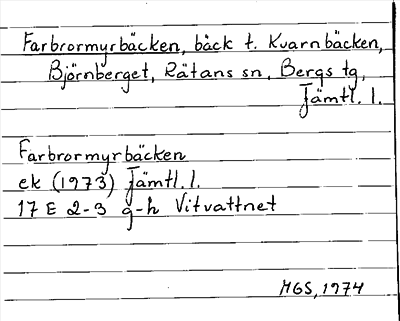 Farbrormyrbäcken, bäck t. Kvarnbäcken,
Björnberget, Rätans sn, Bergs tg,
Jämtl. l.
Farbrormyrbäcken
ek (1973) Jämtl. l.
17 E 2-3 g-h Vitvattnet
MGS, 1974